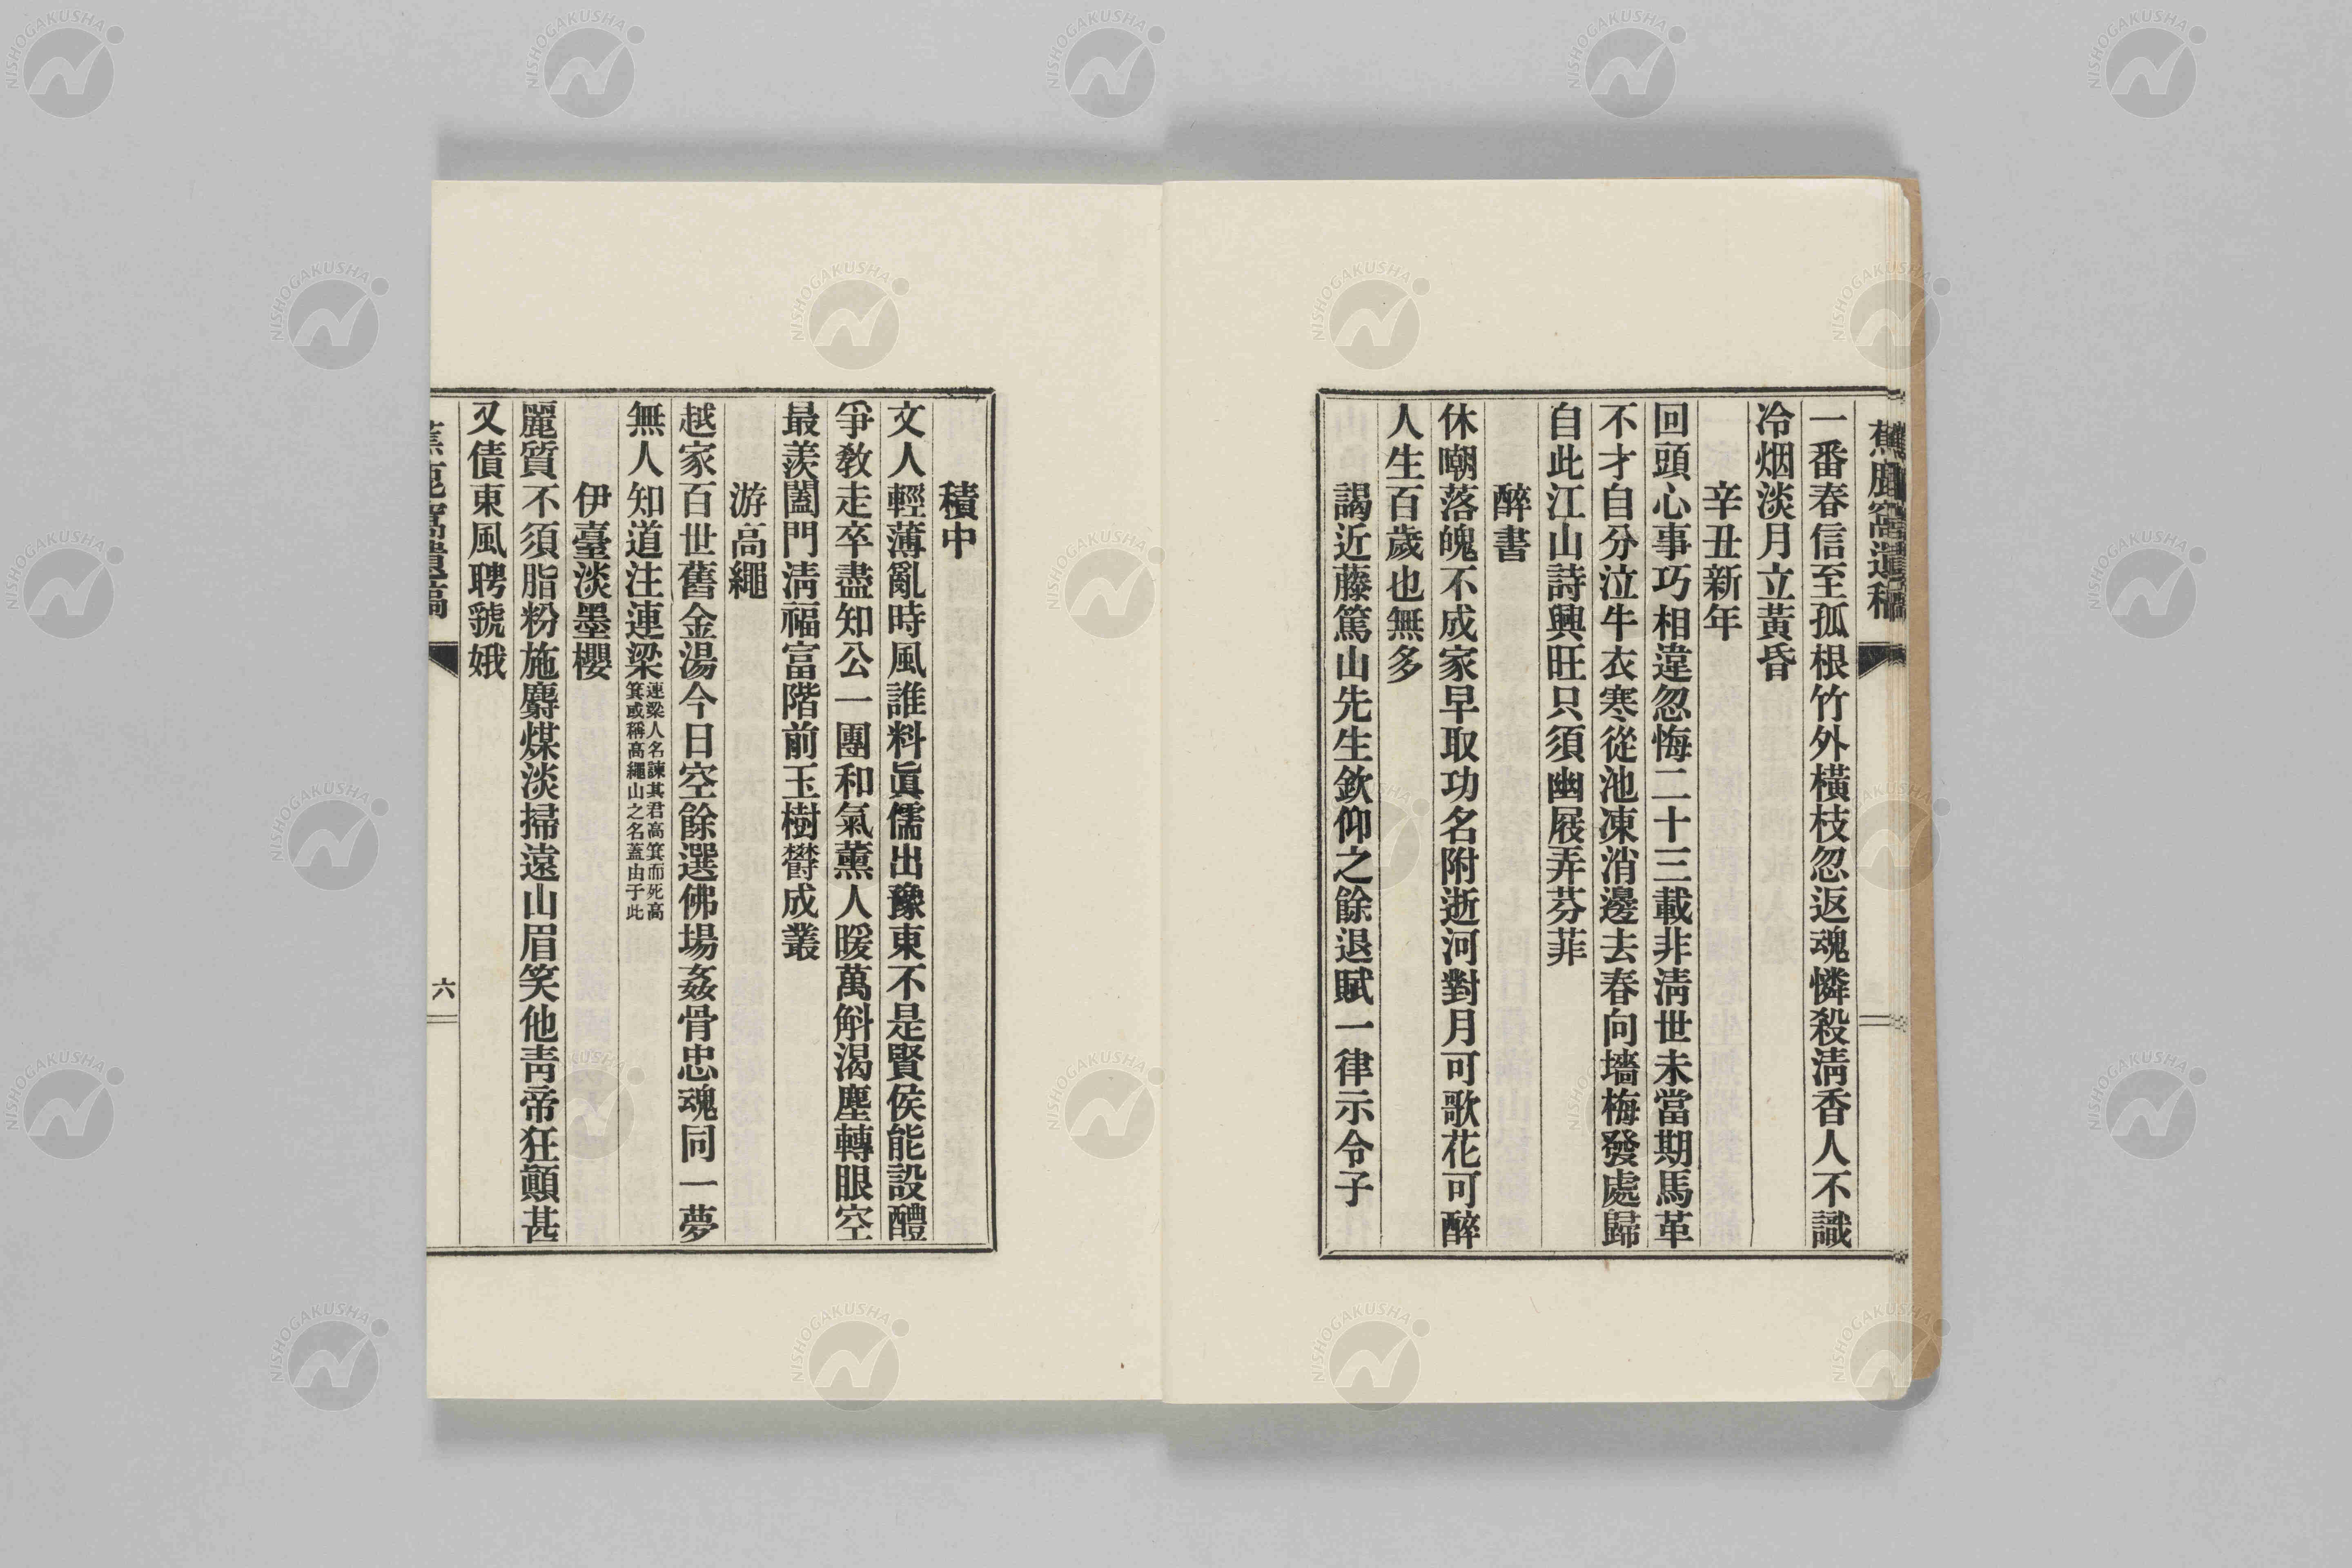 蕉鹿窩遺稿
一番春信至孤根竹外橫枝忽返魂憐殺淸香人不識
冷烟淡月立黃昏
辛丑新年
回頭心事巧相違忽悔二十三載非淸世未當期馬革
不才自分泣牛衣寒從池凍消邊去春向墻梅發處歸
自此江山詩興旺只須幽屐弄芬菲
醉書
休嘲落魄不成家早取功名附逝河對月可歌花可醉
人生百歲也無多
謁近藤篤山先生欽仰之餘退賦一律示令子
積中
文人輕薄亂時風誰料眞儒出豫東不是賢侯能設醴
爭教走卒盡知公一團和氣薰人暖萬斛渴塵轉眼空
最羨闔門淸福富階前玉樹欝成叢
游高繩
越家百世舊金湯今日空餘選佛場姦骨忠魂同一夢
無人知道注連梁
連梁人名諫其君高箕而死高
箕或稱高繩山之名蓋由于此
伊臺淡墨櫻
麗質不須脂粉施麝煤淡掃遠山眉笑他靑帝狂顚甚
又債東風聘虢娥
蕉鹿窩遺稿
六
NISHOGAKUSHA